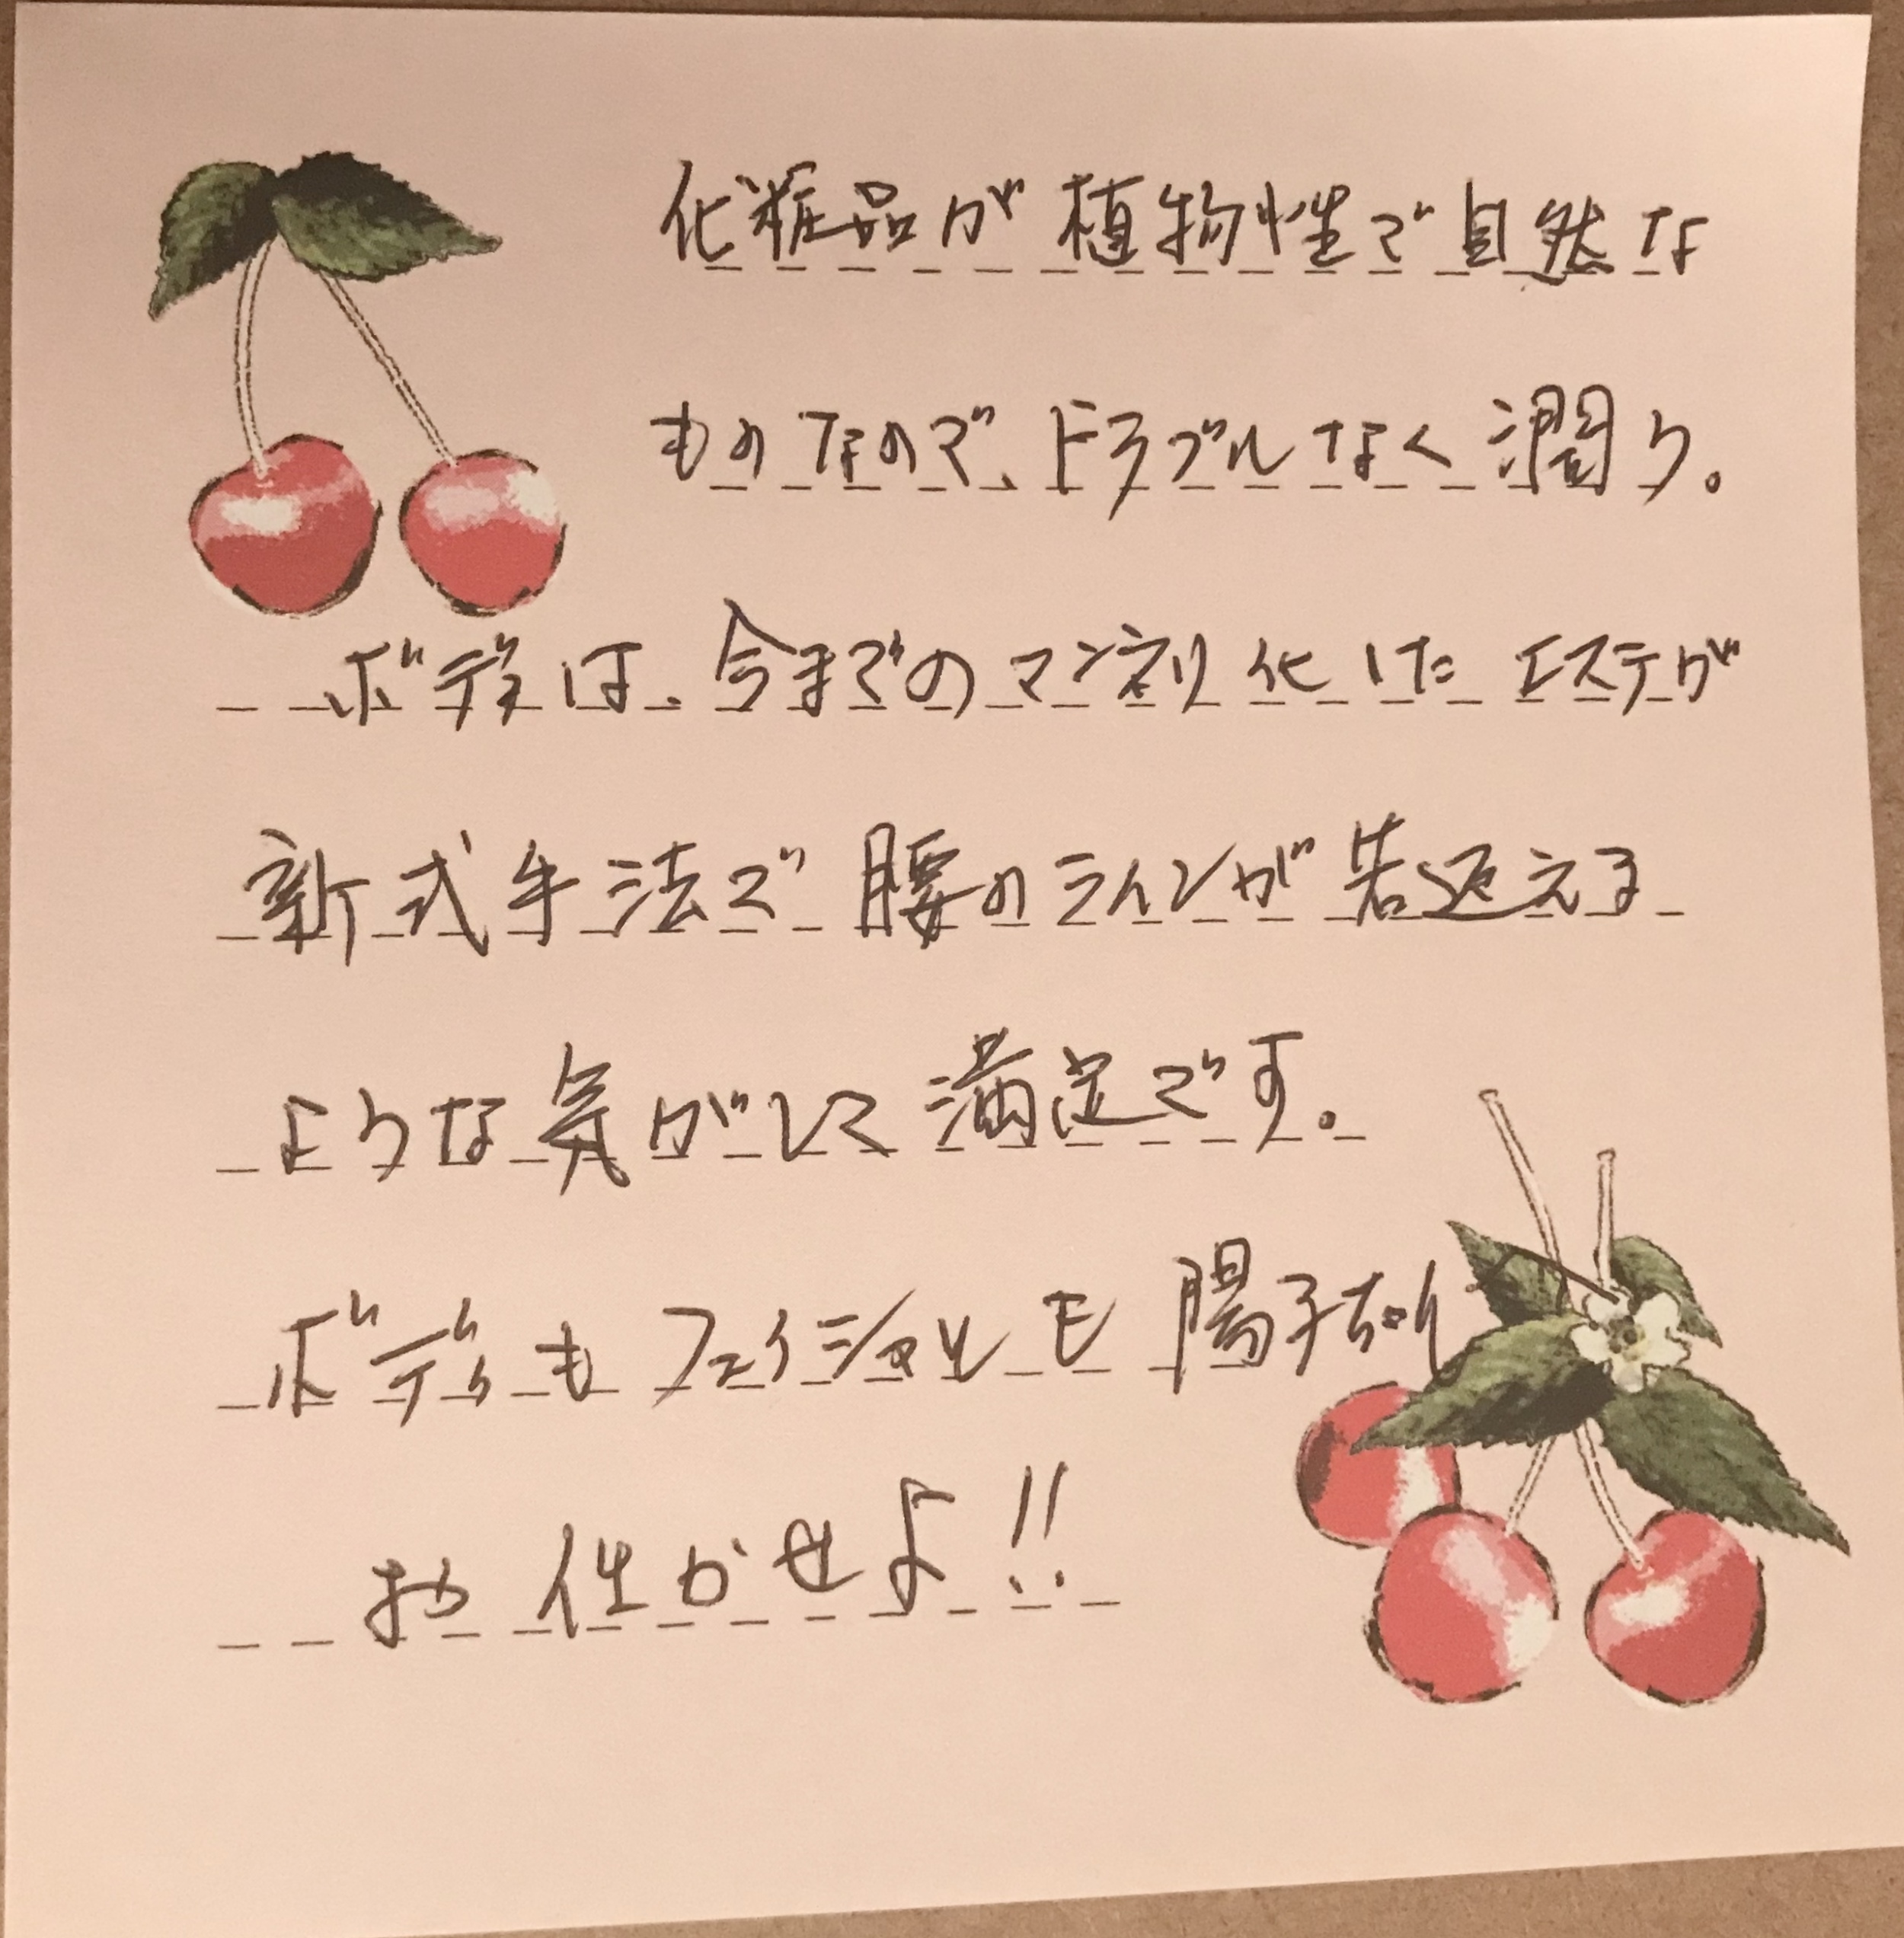 化粧品が植物性で自然な
ものなので、トラブルなく潤う。
ボディは、今までのマンネリ化したエステが
新式手法で腰のラインが若返える
ような気がして満足です。
ボディもフェイシャルも陽子ちゃん
お任かせよ!!